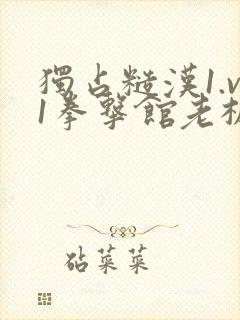 獨占糙漢1.v
1拳擊館老板
砧菜菜